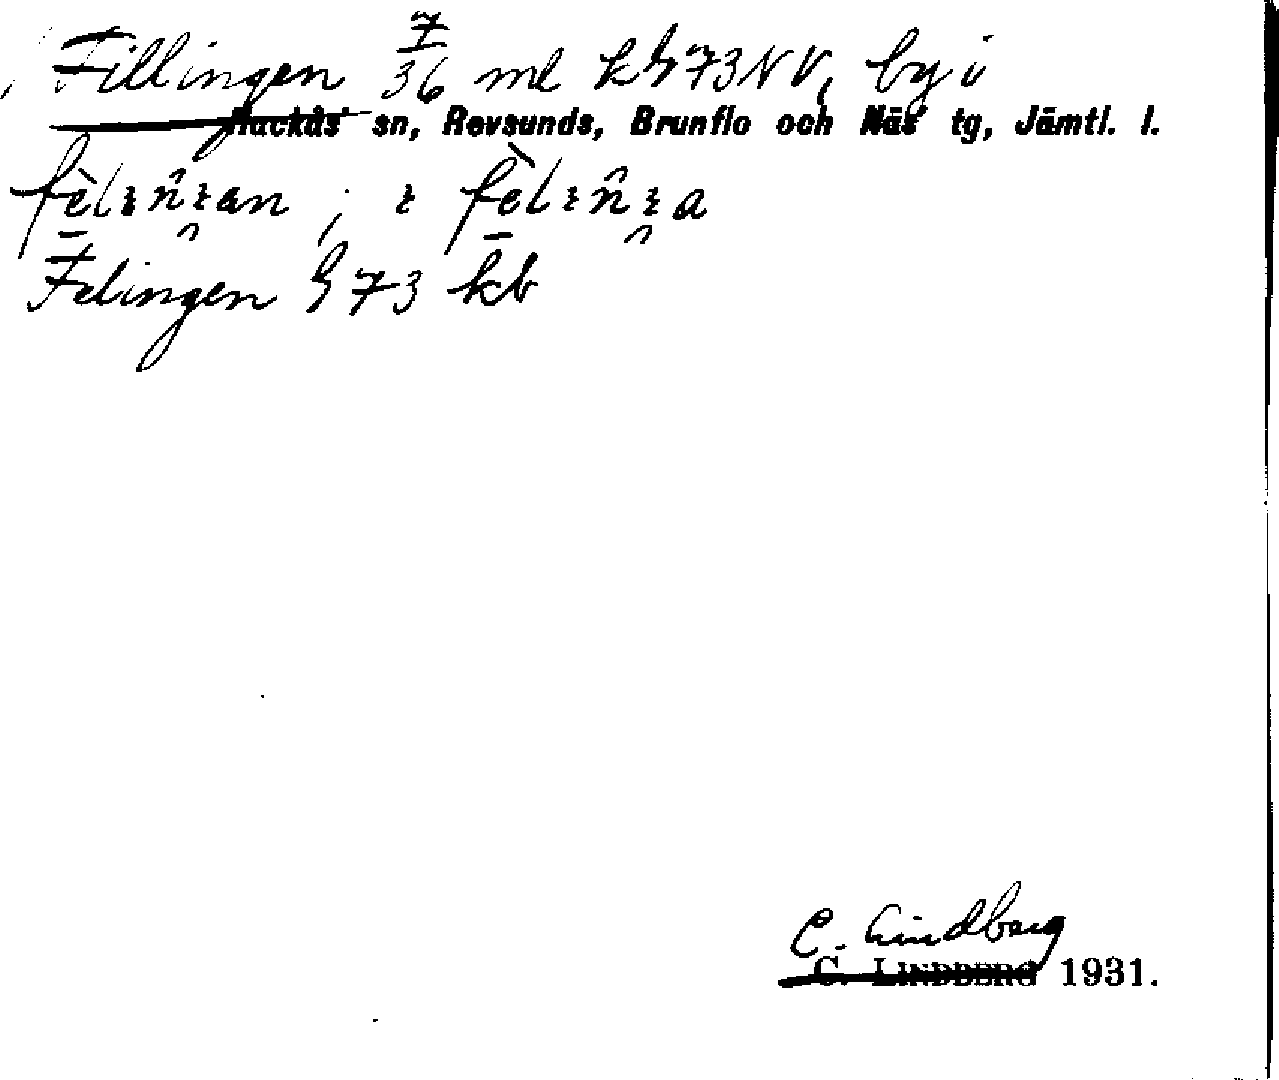 Fillingen 7/36 ml k h73NV, by i
Hackås sn, Revsunds, Brunflo och Näs tg, Jämtl. l.
Felingen h73 kb
C. Lindberg
C. LINDBERG 1931.